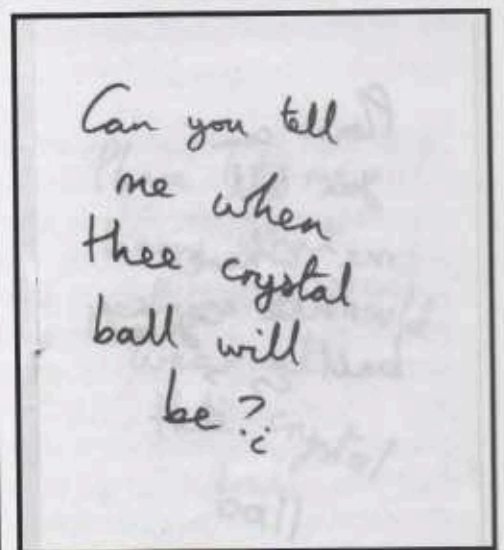 Can you tell
me when
thee crystal
ball will
be?